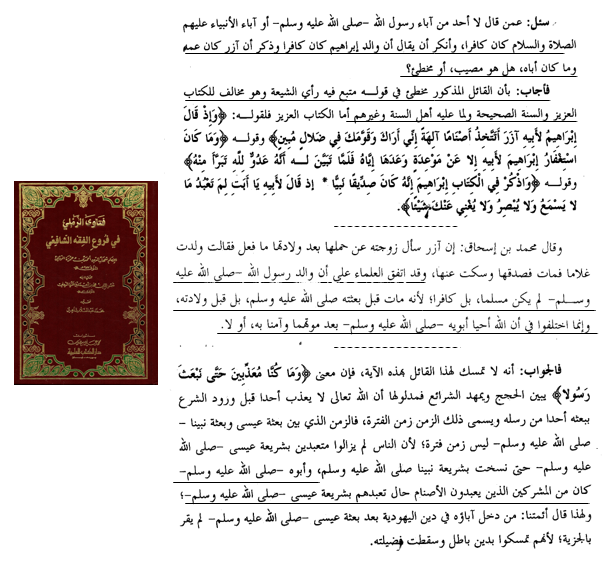 سئل: عمن قال لا أحد من آباء رسول الله –صلى الله عليه وسلم– أو آباء الأنبياء عليهم
الصلاة والسلام كان كافرا، وأنكر أن يقال أن والد إبراهيم كان كافرا وذكر أن آزر كان عمه
وما كان أباه، هل هو مصيب، أو مخطئ؟
فأجاب: بأن القائل المذكور مخطئ في قوله متبع فيه رأي الشيعة وهو مخالف للكتاب
العزيز والسنة الصحيحة ولما عليه أهل السنة وغيرهم أما الكتاب العزيز فلقوله: ﴿وَإِذْ قَالَ
إِبْرَاهِيمُ لأَبِيهِ آزَرَ أَتَتَّخِذُ أَصْنَامًا آلِهَةً إِنِّي أَرَاكَ وَقَوْمَكَ فِي ضَلالٍ مُبِينٍ﴾ وقوله ﴿وَمَا كَانَ
اسْتِغْفَارُ إِبْرَاهِيمَ لأَبِيهِ إِلا عَنْ مَوْعِدَةٍ وَعَدَهَا إِيَّاهُ فَلَمَّا تَبَيَّنَ لَهُ أَنَّهُ عَدُوٌّ لِلَّهِ تَبَرَّأَ مِنْهُ﴾
وقوله ﴿وَاذْكُرْ فِي الْكِتَابِ إِبْرَاهِيمَ إِنَّهُ كَانَ صِدِّيقًا نَبِيًّا * إذ قَالَ لأَبِيهِ يَا أَبَتِ لِمَ تَعْبُدُ مَا
لا يَسْمَعُ وَلا يُبْصِرُ وَلا يُغْنِي عَنْكَ شَيْئًا﴾.
وقال محمد بن إسحاق: إن آزر سأل زوجته عن حملها بعد ولادتها ما فعل فقالت ولدت
غلاما فمات فصدقها وسكت عنها، وقد اتفق العلماء على أن والد رسول الله –صلى الله عليه
وسلم– لم يكن مسلما، بل كافرا؛ لأنه مات قبل بعثته صلى الله عليه وسلم، بل قبل ولادته،
وإنما اختلفوا في أن الله أحيا أبويه –صلى الله عليه وسلم– بعد موتهما وآمنا به، أو لا.
فالجواب: أنه لا تمسك لهذا القائل بهذه الآية، فإن معنى ﴿وَمَا كُنَّا مُعَذِّبِينَ حَتَّى نَبْعَثَ
رَسُولا﴾ يبين الحجج ويمهد الشرائع فمدلولها أن الله تعالى لا يعذب أحدا قبل ورود الشرع
ببعثه أحدا من رسله ويسمى ذلك الزمن زمن الفترة، فالزمن الذي بين بعثة عيسى وبعثة نبينا –
صلى الله عليه وسلم– ليس زمن فترة؛ لأن الناس لم يزالوا متعبدين بشريعة عيسى –صلى الله
عليه وسلم– حتى نسخت بشريعة نبينا صلى الله عليه وسلم، وأبوه –صلى الله عليه وسلم–
كان من المشركين الذين يعبدون الأصنام حال تعبدهم بشريعة عيسى –صلى الله عليه وسلم–؛
ولهذا قال أئمتنا: من دخل آباؤه في دين اليهودية بعد بعثة عيسى –صلى الله عليه وسلم– لم يقر
بالجزية؛ لأنهم تمسكوا بدين باطل وسقطت فضيلته.
فتاوى الرملي
في فروع الفقه الشافعي
دار الكتب العلمية